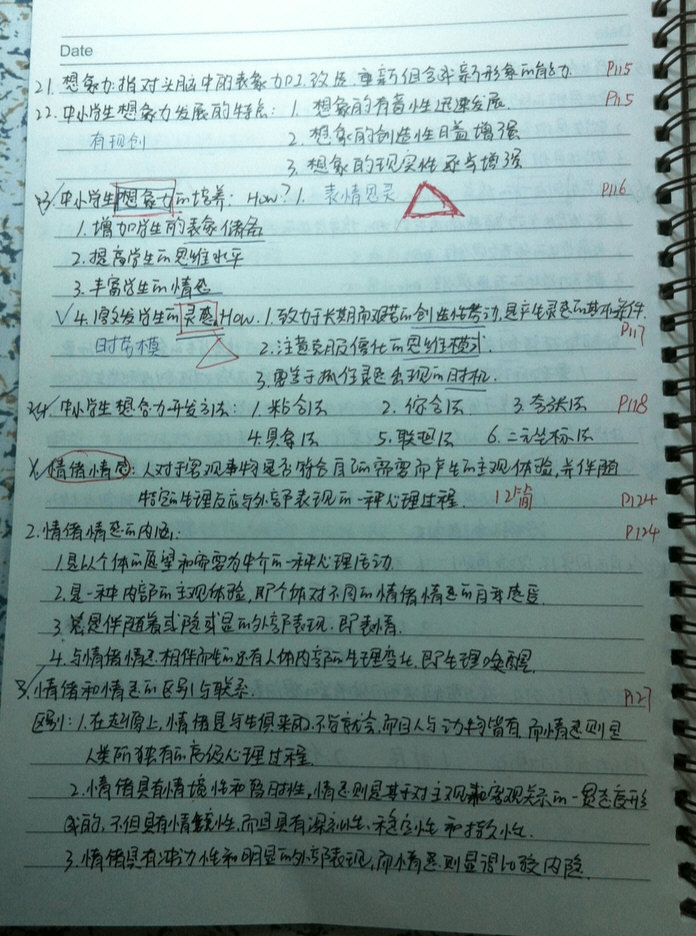 Date
21. 想象力:指对头脑中的表象加以改造、重新组合成新形象的能力. P115
22. 中小学生想象力发展的特点: 1. 想象的有意性迅速发展. P115
有现创 2. 想象的创造性日益增强
3. 想象的现实性逐步增强
23. 中小学生想象力的培养: How? 1. 表情思灵 P116
1. 增加学生的表象储备
2. 提高学生的思维水平
3. 丰富学生的情感
√ 4. 激发学生的灵感 How. 1. 致力于长期而艰苦的创造性劳动,是产生灵感的基本条件. P117
2. 注意克服僵化的思维模式.
3. 要善于抓住灵感出现的时机.
24. 中小学生想象力开发方法: 1. 粘合法 2. 综合法 3. 夸张法 P118
4. 具象法 5. 联想法 6. 二元坐标法
情绪情感: 人对于客观事物是否符合自己的需要而产生的主观体验,并伴随
特定的生理反应与外部表现的一种心理过程. 12简 P124
2. 情绪情感的内涵: P124
1. 是以个体的愿望和需要为中介的一种心理活动
2. 是一种内部的主观体验,即个体对不同的情绪情感的自我感受.
3. 总是伴随着或隐或显的外部表现.即表情.
4. 与情绪情感相伴而生的还有人体内部的生理变化,即生理唤醒.
3. 情绪和情感的区别与联系. P127
区别: 1. 在起源上,情绪是与生俱来的,不学就会,而且人与动物皆有,而情感则是
人类所独有的高级心理过程.
2. 情绪具有情境性和暂时性,情感则是基于对主观和客观关系的一贯态度形
成的,不但具有情境性,而且具有深刻性、稳定性和持久性.
3. 情绪具有冲动性和明显的外部表现,而情感则显得比较内隐.